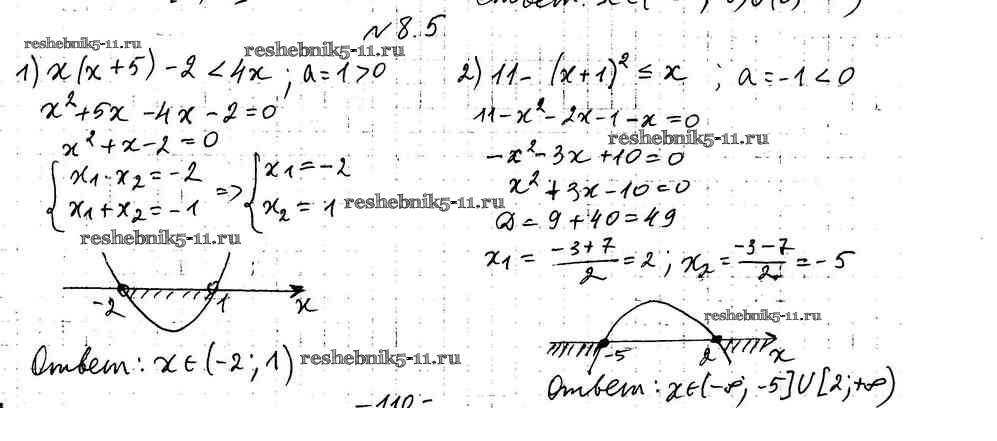 № 8.5
reshebnik5-11.ru
reshebnik5-11.ru
1) x(x+5) -2 < 4x ; a=1>0
x²+5x -4x -2 =0
x²+x-2 =0
{ x₁·x₂=-2 => { x₁=-2
x₁+x₂=-1 x₂= 1 reshebnik5-11.ru
reshebnik5-11.ru
-2 1 x
Ответ: x∈(-2; 1) reshebnik5-11.ru
2) 11- (x+1)² ≤ x ; a=-1<0
11-x²-2x-1-x=0
reshebnik5-11.ru
-x²-3x+10=0
x²+3x-10=0
D= 9+40=49
x₁= (-3+7)/2 =2 ; x₂= (-3-7)/2 =-5
reshebnik5-11.ru
-5 2 x
Ответ: x∈(-∞; -5]U[2;+∞)